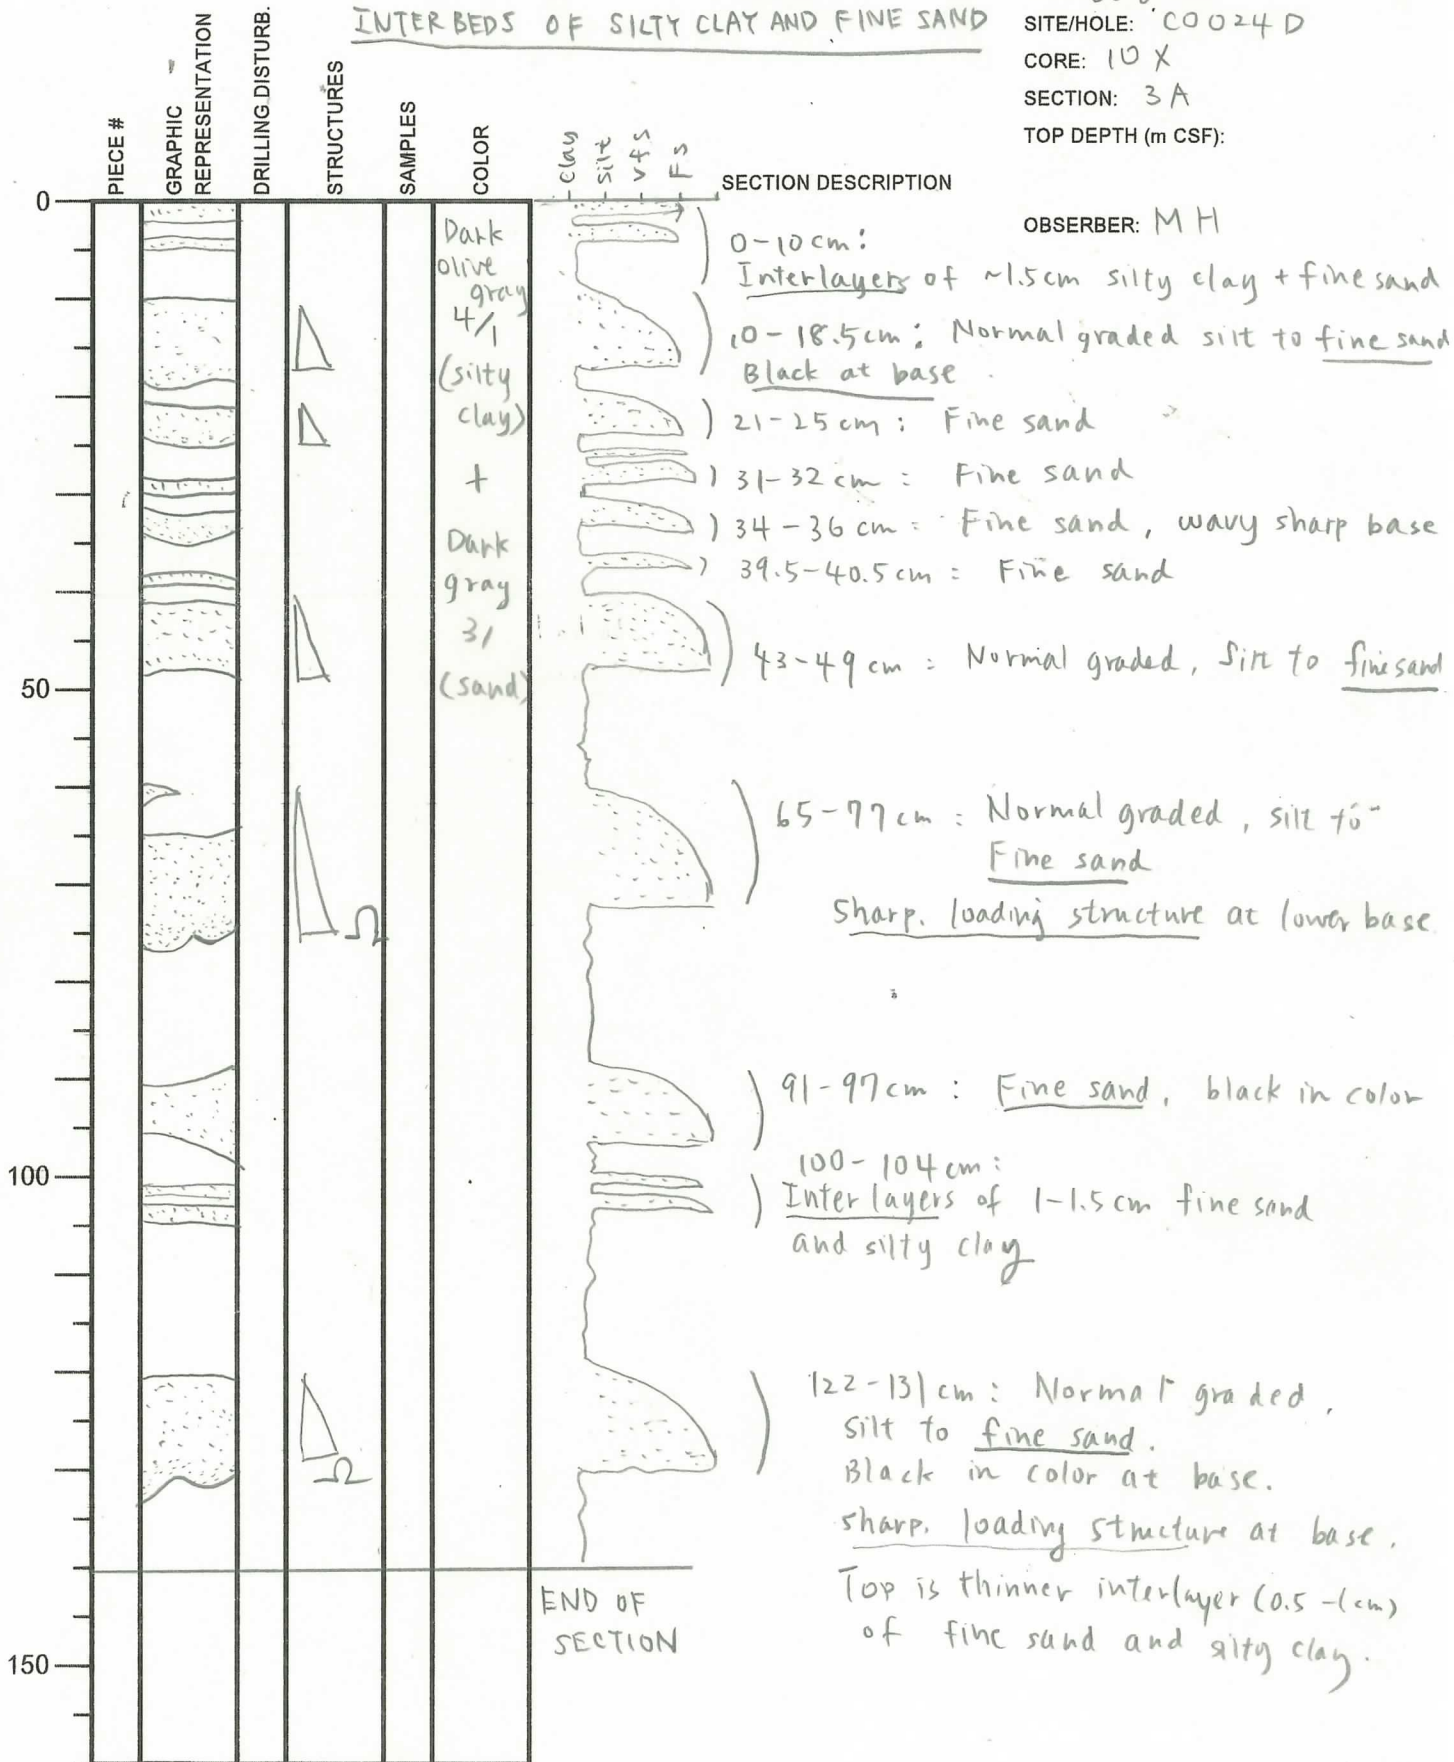 INTERBEDS OF SILTY CLAY AND FINE SAND
SITE/HOLE: C0024D
CORE: 10X
SECTION: 3A
TOP DEPTH (m CSF):
OBSERBER: MH
PIECE #
GRAPHIC REPRESENTATION
DRILLING DISTURB.
STRUCTURES
SAMPLES
COLOR
Clay
silt
vfs
Fs
SECTION DESCRIPTION
0
50
100
150
Dark
olive
gray
4/1
(silty
clay)
+
Dark
gray
3/
(sand)
0-10cm:
Interlayers of ~1.5cm silty clay + fine sand
10-18.5cm: Normal graded silt to fine sand
Black at base.
21-25cm: Fine sand
31-32cm: Fine sand
34-36cm: Fine sand, wavy sharp base
39.5-40.5cm: Fine sand
43-49cm: Normal graded, silt to fine sand
65-77cm: Normal graded, silt to
Fine sand
Sharp. loading structure at lower base
Ω
91-97cm: Fine sand, black in color
100-104cm:
Inter layers of 1-1.5cm fine sand
and silty clay
122-131cm: Normal graded,
silt to fine sand.
Black in color at base.
sharp. loading structure at base.
Ω
Top is thinner interlayer (0.5-1cm)
of fine sand and silty clay.
END OF
SECTION